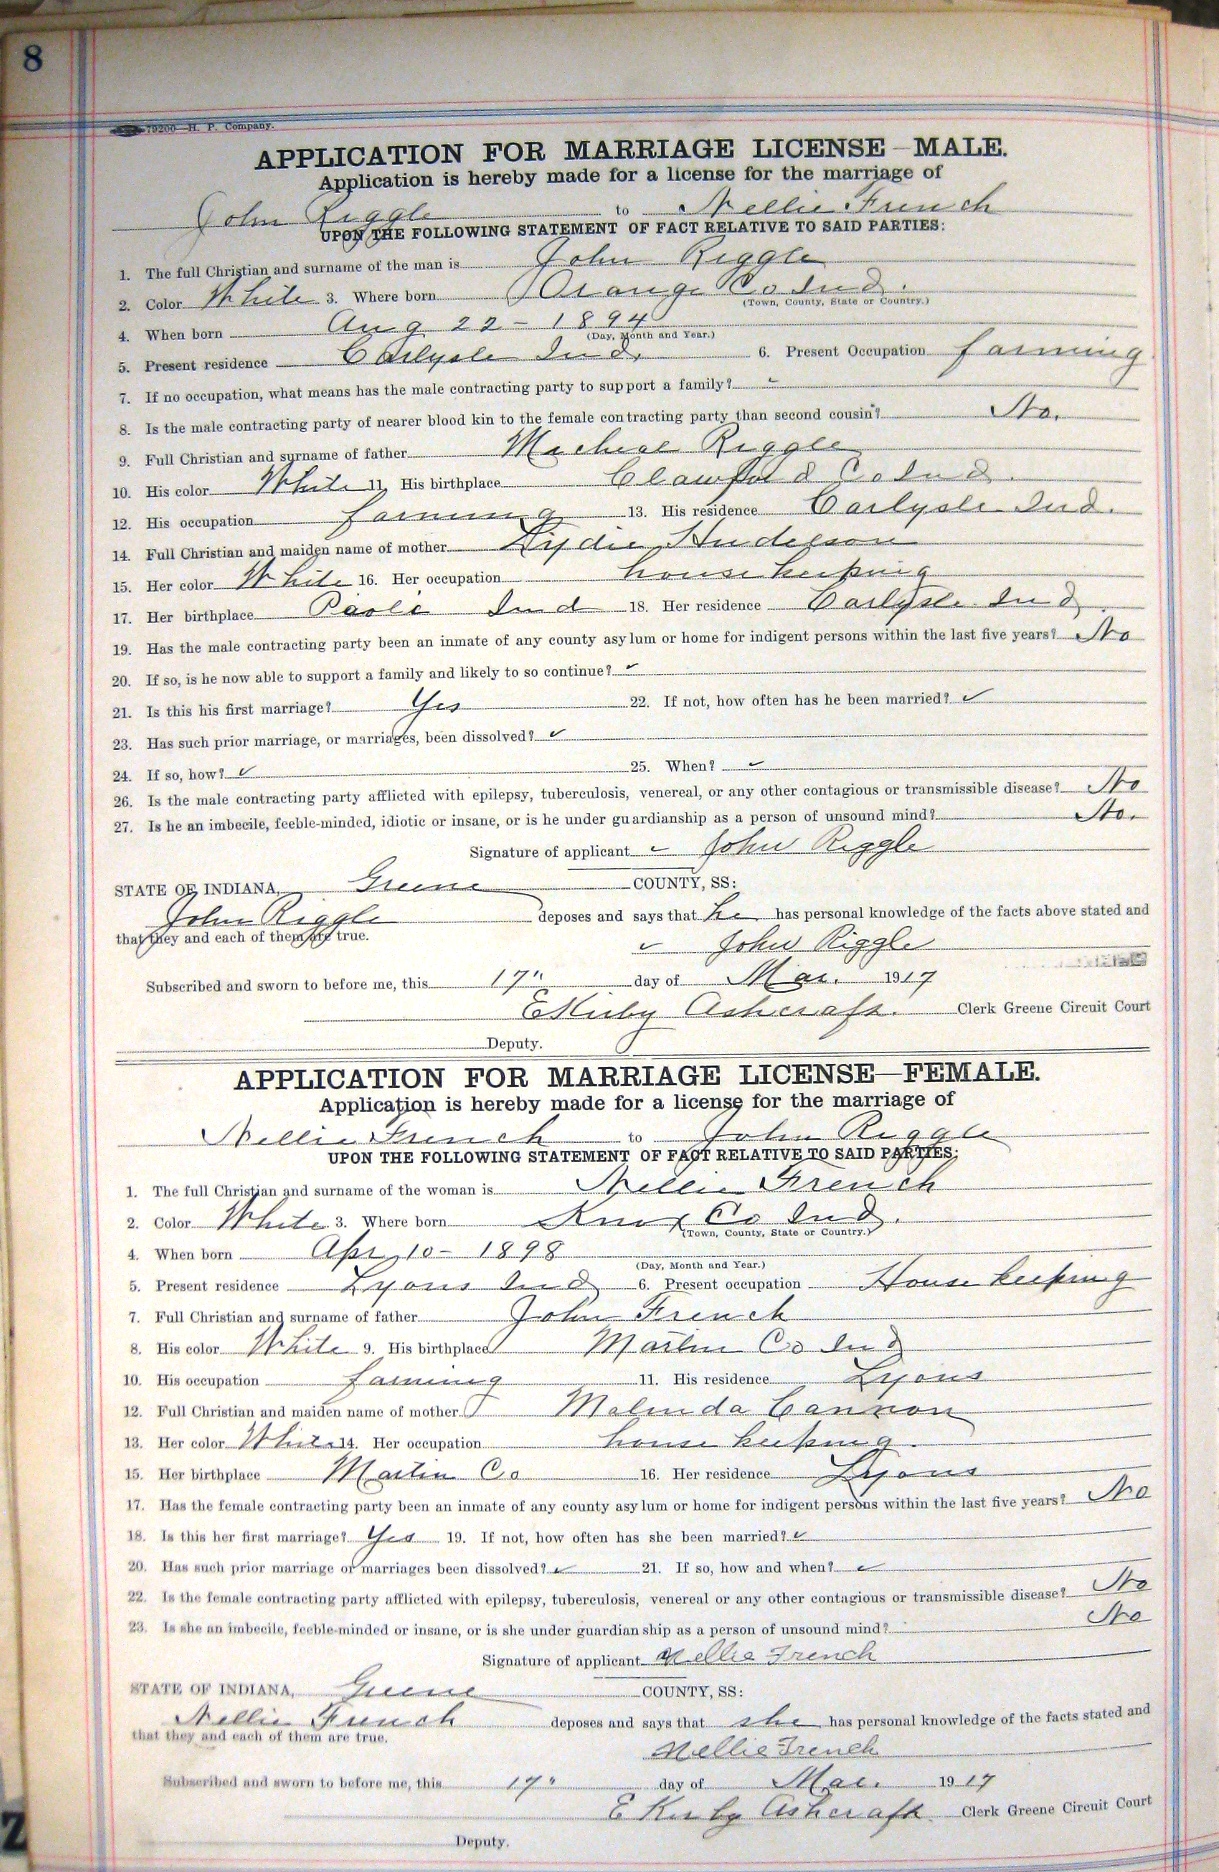 8
79200—H. P. Company.
APPLICATION FOR MARRIAGE LICENSE—MALE.
Application is hereby made for a license for the marriage of
John Riggle to Nellie French
UPON THE FOLLOWING STATEMENT OF FACT RELATIVE TO SAID PARTIES:
1. The full Christian and surname of the man is John Riggle
2. Color White 3. Where born Orange Co Ind.
(Town, County, State or Country.)
4. When born Aug 22 - 1894
(Day, Month and Year.)
5. Present residence Carlysle Ind. 6. Present Occupation farming
7. If no occupation, what means has the male contracting party to support a family? ✓
8. Is the male contracting party of nearer blood kin to the female contracting party than second cousin? No.
9. Full Christian and surname of father Micheal Riggle
10. His color White 11. His birthplace Clawford Co Ind.
12. His occupation farming 13. His residence Carlysle Ind.
14. Full Christian and maiden name of mother Lydie Henderson
15. Her color White 16. Her occupation housekeeping
17. Her birthplace Paoli Ind 18. Her residence Carlysle Ind.
19. Has the male contracting party been an inmate of any county asylum or home for indigent persons within the last five years? No
20. If so, is he now able to support a family and likely to so continue? ✓
21. Is this his first marriage? Yes 22. If not, how often has he been married? ✓
23. Has such prior marriage, or marriages, been dissolved? ✓
24. If so, how? ✓ 25. When? ✓
26. Is the male contracting party afflicted with epilepsy, tuberculosis, venereal, or any other contagious or transmissible disease? No
27. Is he an imbecile, feeble-minded, idiotic or insane, or is he under guardianship as a person of unsound mind? No.
Signature of applicant ✓ John Riggle
STATE OF INDIANA, Greene COUNTY, SS:
John Riggle deposes and says that he has personal knowledge of the facts above stated and
that they and each of them are true.
✓ John Riggle
Subscribed and sworn to before me, this 17" day of Mar. 1917
E Kirby Ashcraft. Clerk Greene Circuit Court
Deputy.
APPLICATION FOR MARRIAGE LICENSE—FEMALE.
Application is hereby made for a license for the marriage of
Nellie French to John Riggle
UPON THE FOLLOWING STATEMENT OF FACT RELATIVE TO SAID PARTIES:
1. The full Christian and surname of the woman is Nellie French
2. Color White 3. Where born Knox Co Ind.
(Town, County, State or Country.)
4. When born Apr 10 - 1898
(Day, Month and Year.)
5. Present residence Lyons Ind 6. Present occupation House keeping
7. Full Christian and surname of father John French
8. His color White 9. His birthplace Martin Co Ind
10. His occupation farming 11. His residence Lyons
12. Full Christian and maiden name of mother Malinda Cannon
13. Her color White 14. Her occupation house keeping.
15. Her birthplace Martin Co 16. Her residence Lyons
17. Has the female contracting party been an inmate of any county asylum or home for indigent persons within the last five years? No
18. Is this her first marriage? Yes 19. If not, how often has she been married? ✓
20. Has such prior marriage or marriages been dissolved? ✓ 21. If so, how and when? ✓
22. Is the female contracting party afflicted with epilepsy, tuberculosis, venereal or any other contagious or transmissible disease? No
23. Is she an imbecile, feeble-minded or insane, or is she under guardianship as a person of unsound mind? No
Signature of applicant Nellie French
STATE OF INDIANA, Greene COUNTY, SS:
Nellie French deposes and says that she has personal knowledge of the facts stated and
that they and each of them are true.
Nellie French
Subscribed and sworn to before me, this 17" day of Mar. 1917
E Kirby Ashcraft Clerk Greene Circuit Court
Deputy.